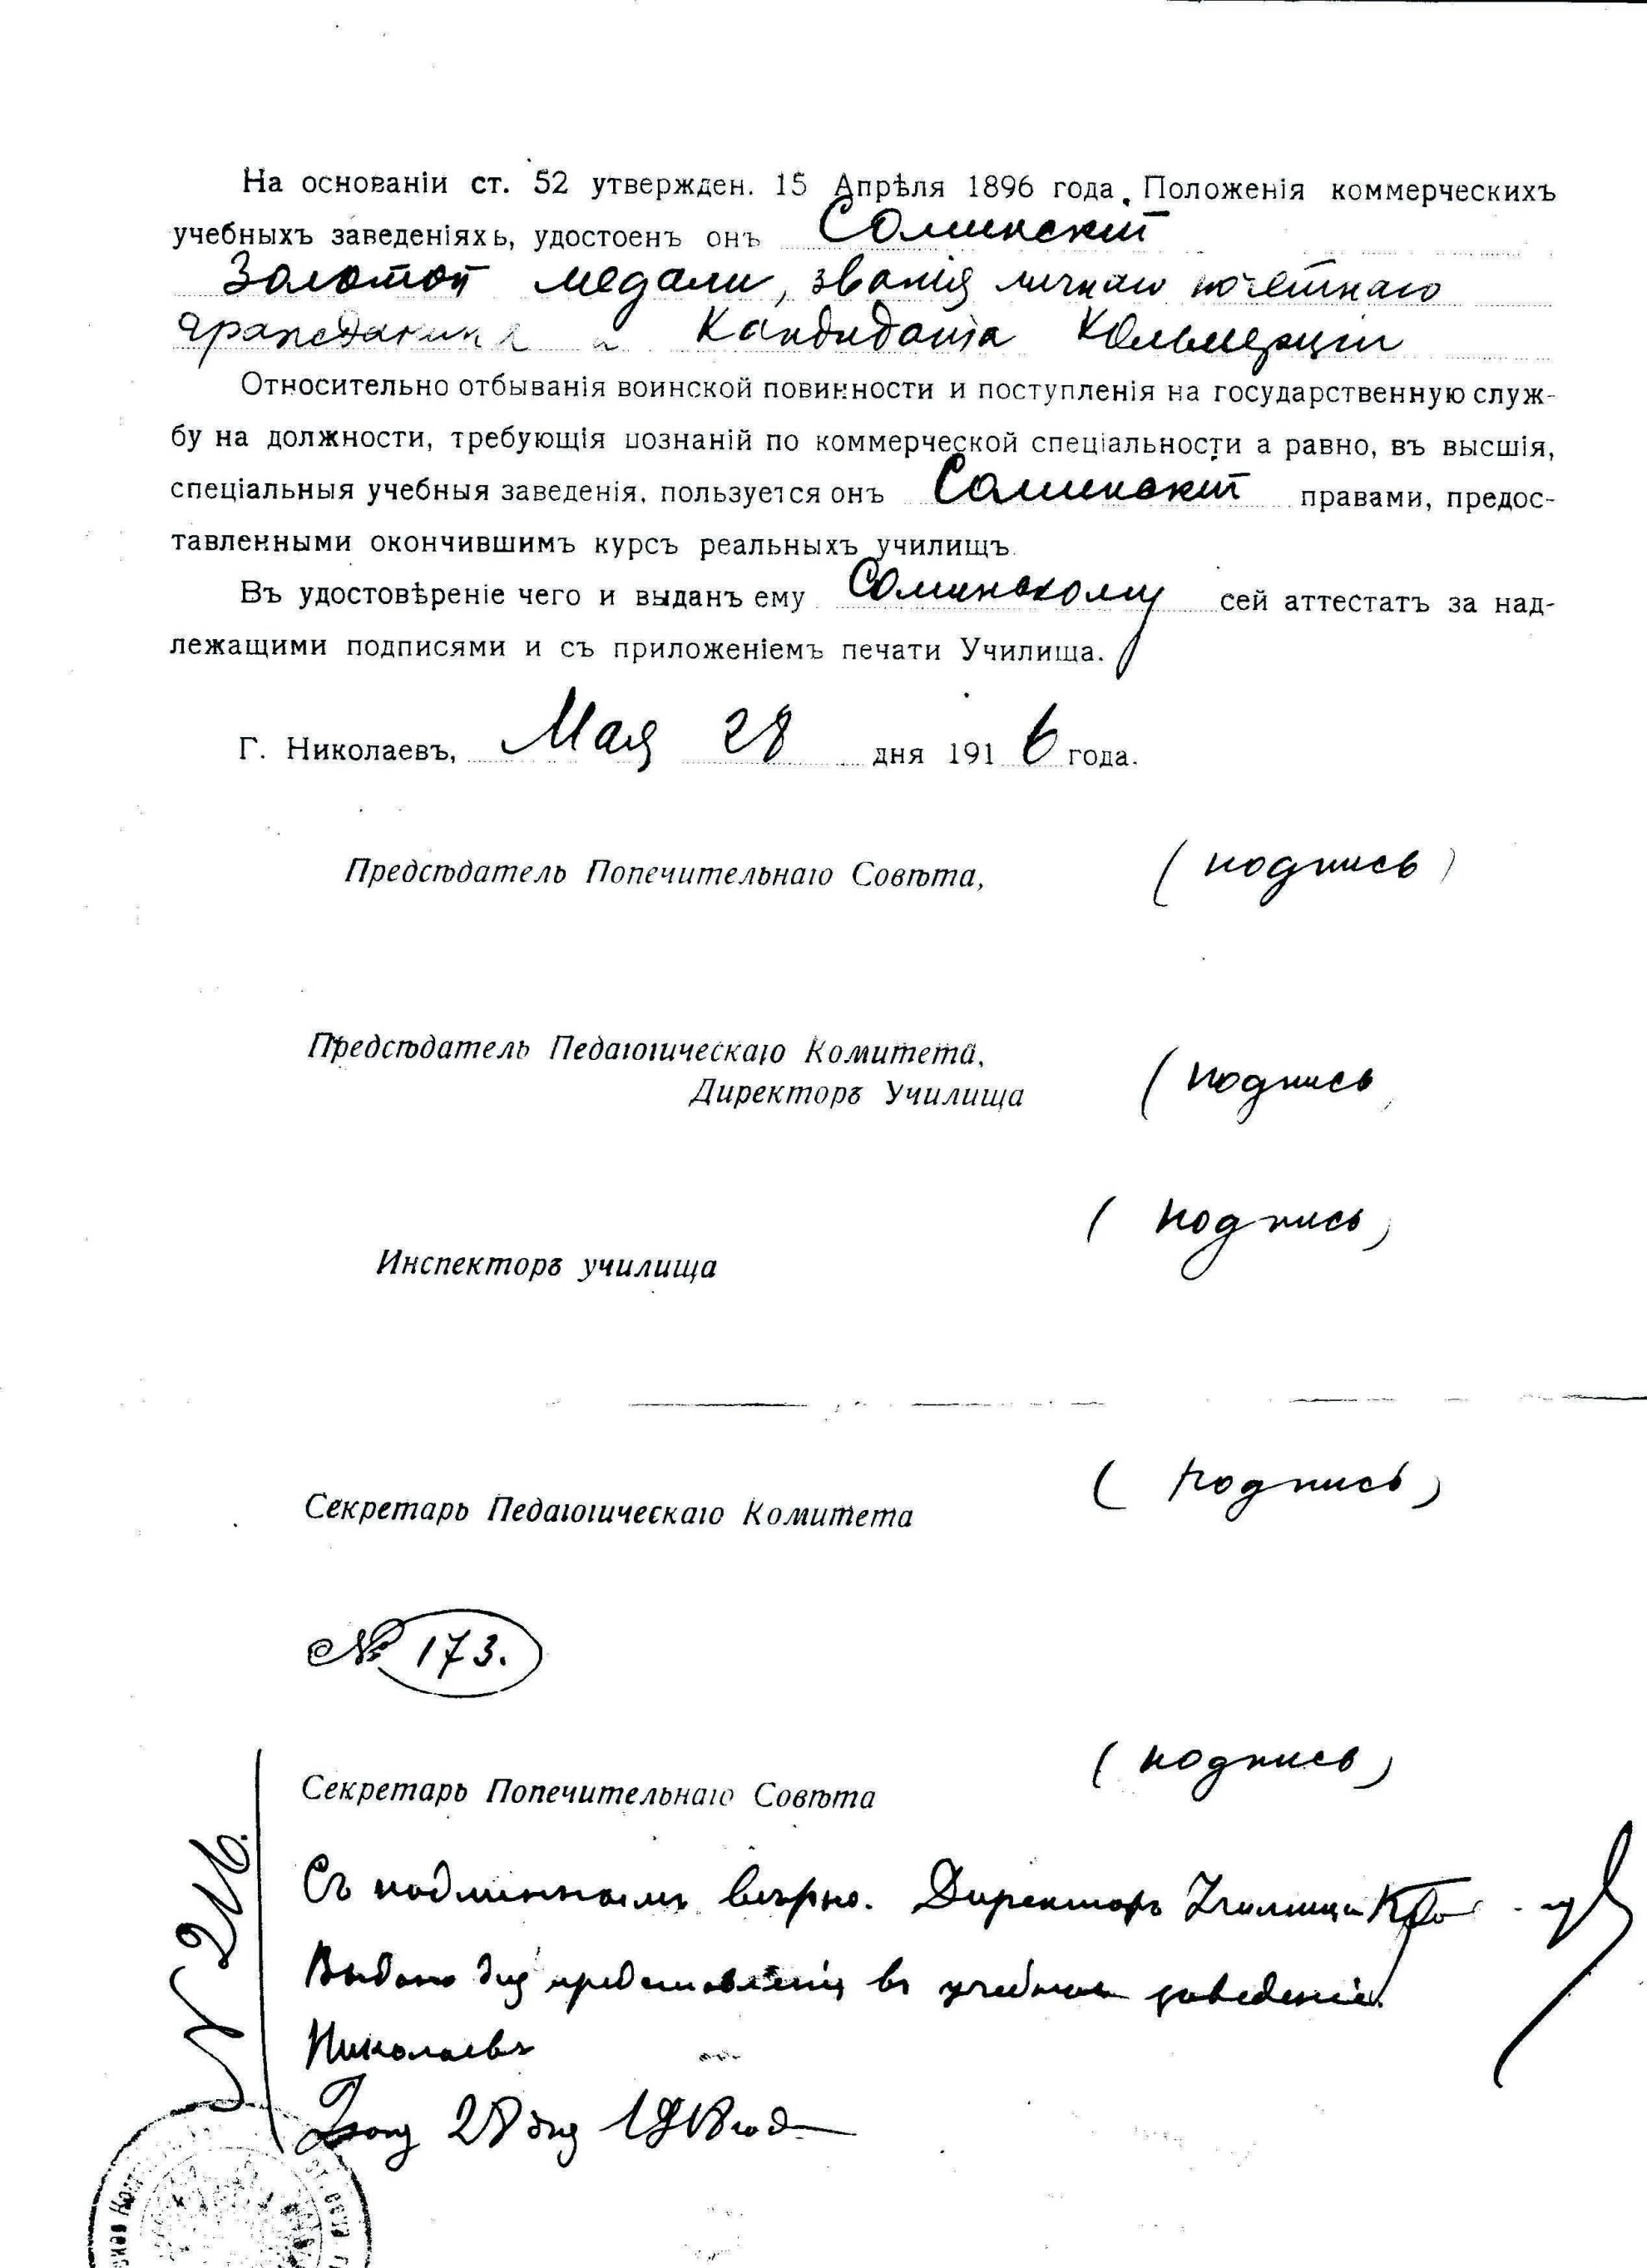 На основаніи ст. 52 утвержден. 15 Апрѣля 1896 года. Положенія коммерческихъ
учебныхъ заведеніяхъ, удостоенъ онъ Соминскій
Золотой медали, званія личнаго почетнаго
гражданина и Кандидата Коммерціи
Относительно отбыванія воинской повинности и поступленія на государственную служ-
бу на должности, требующія познаній по коммерческой спеціальности а равно, въ высшія,
спеціальныя учебныя заведенія, пользуется онъ Соминскій правами, предос-
тавленными окончившимъ курсъ реальныхъ училищъ.
Въ удостовѣреніе чего и выданъ ему Соминскому сей аттестатъ за над-
лежащими подписями и съ приложеніемъ печати Училища.
Г. Николаевъ, Мая 28 дня 1916 года.
Предсѣдатель Попечительнаго Совѣта, (подпись)
Предсѣдатель Педагогическаго Комитета,
Директоръ Училища (подпись
(подпись)
Инспекторъ училища
Секретарь Педагогическаго Комитета (подпись)
№ 173.
Секретарь Попечительнаго Совѣта (подпись)
Съ подлиннымъ вѣрно. Директоръ Училища
Выдано для представленія въ учебное заведеніе.
Николаевъ
28 дня 1918 года
N 216.